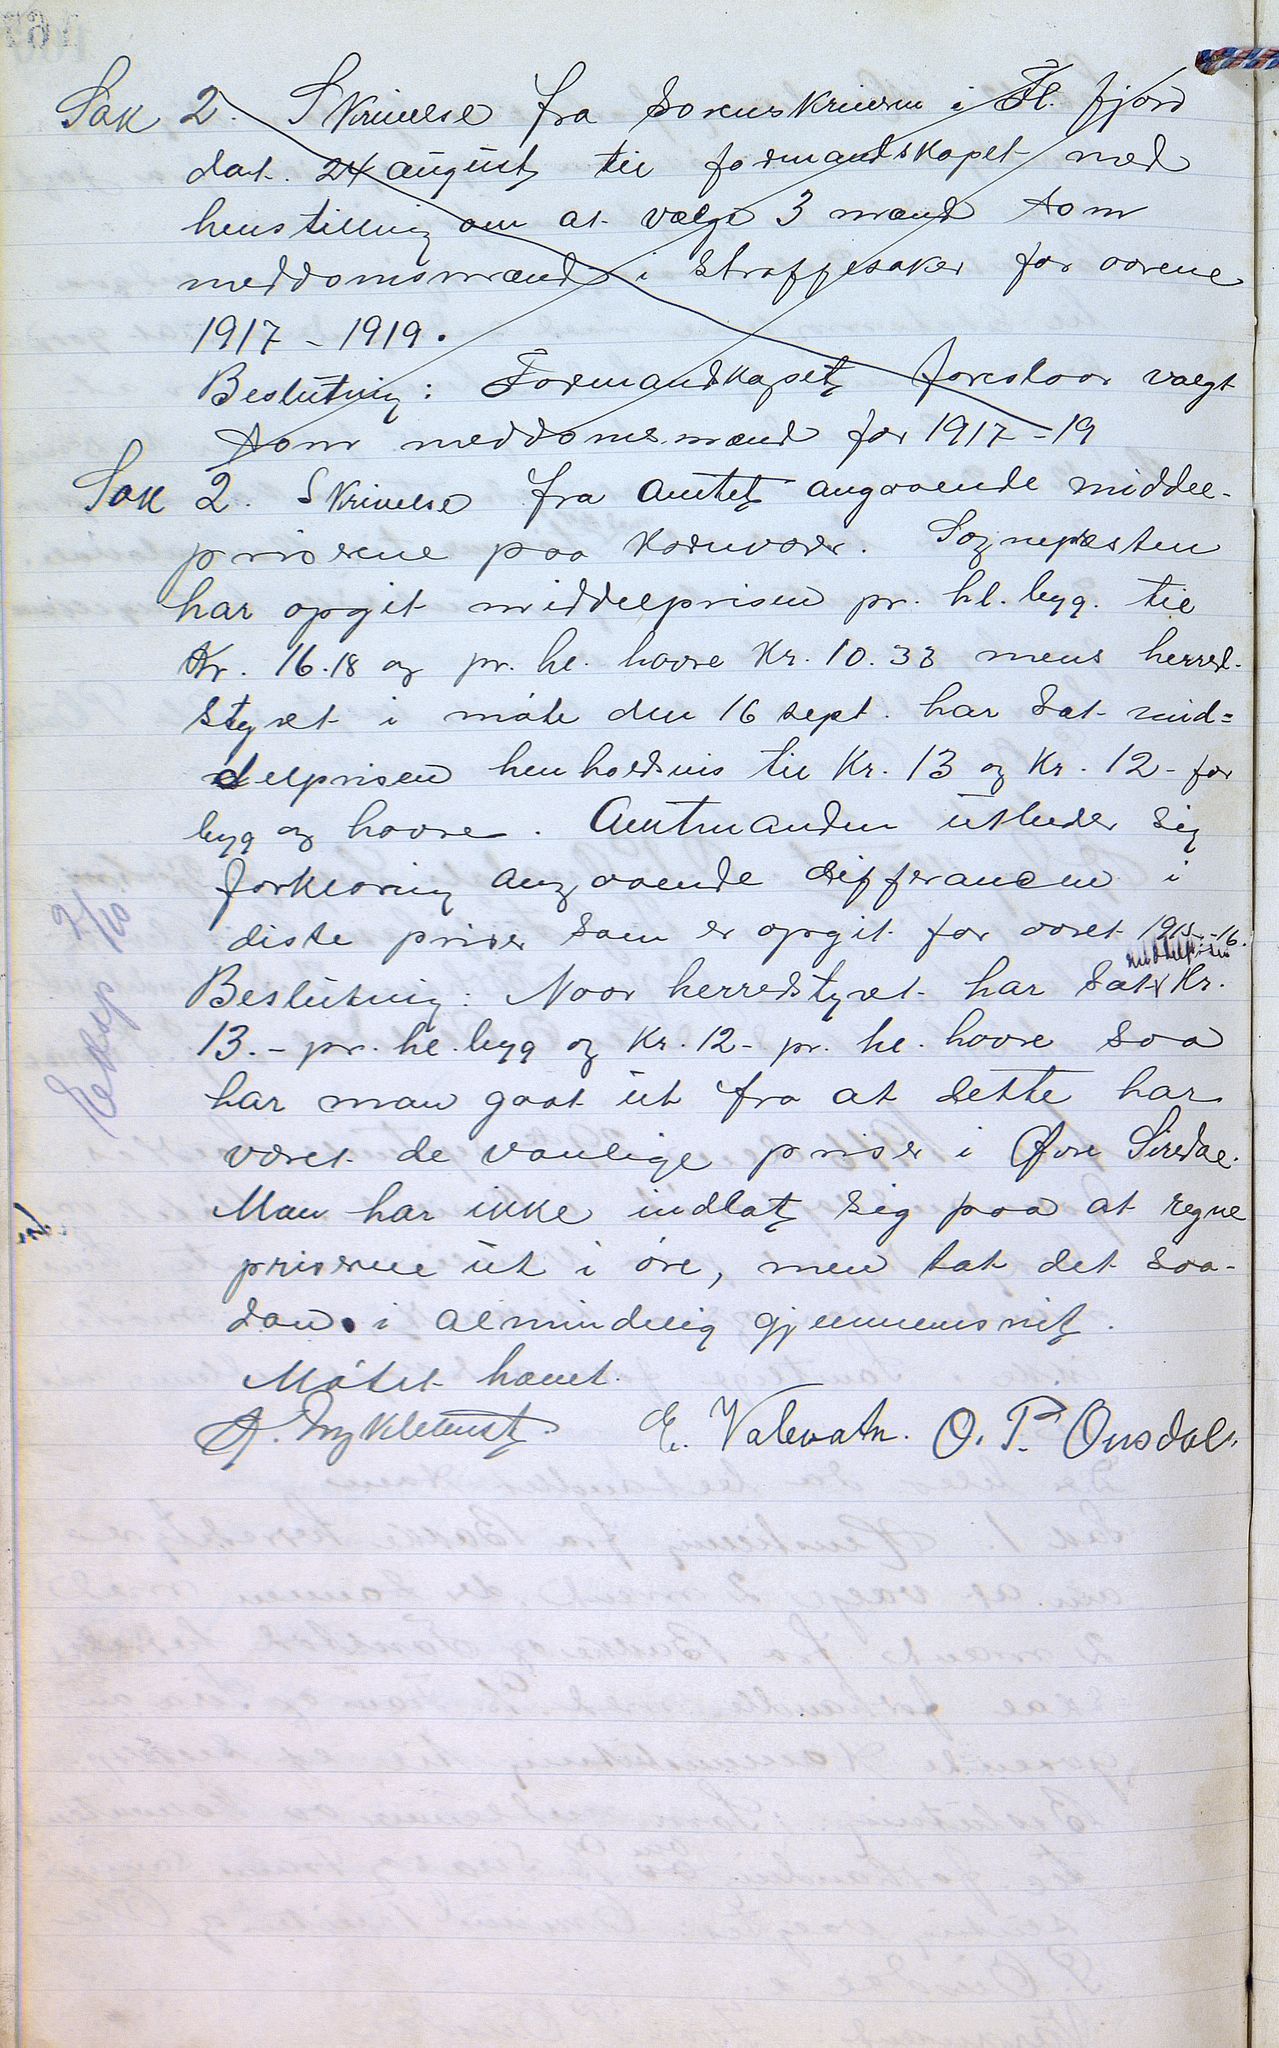 Sak 2. Skrivelse fra Sorenskriveren i Fl. fjord
dat. 24 august til formandskapet med
henstilling om at vælge 3 mænd som
meddomsmænd i straffesaker for aarene
1917 - 1919.
Beslutning: Formandskapet foreslaar valgt
som meddomsmænd for 1917-19
Sak 2. Skrivelse fra Amtet angaaende middel-
priserne paa kornvarer. Sognepresten
har opgit middelprisen pr. hl. byg. til
Kr. 16.18 og pr. hl. havre Kr. 10.33 mens herred-
styret i møte den 16 sept. har sat mid=
delprisen henholdsvis til Kr. 13 og Kr. 12- for
byg og havre. Amtmanden utbeder sig
forklaring angaaende differancen i
diste priser som er opgit for aaret 1915-16.
middelprisen
Beslutning: Naar herredstyret har sat Kr.
13.- pr. hl. byg og Kr. 12- pr. hl. havre saa
har man gaat ut fra at dette har
været de vanlige priser i Øvre Sirdal.
Man har ikke indlat sig paa at regne
priserne ut i øre, men tat det saa-
dan i almindelig gjennemsnit.
Møtet hævet.
E. Valevatn. O. P. Ousdal.
Eksp 2/10